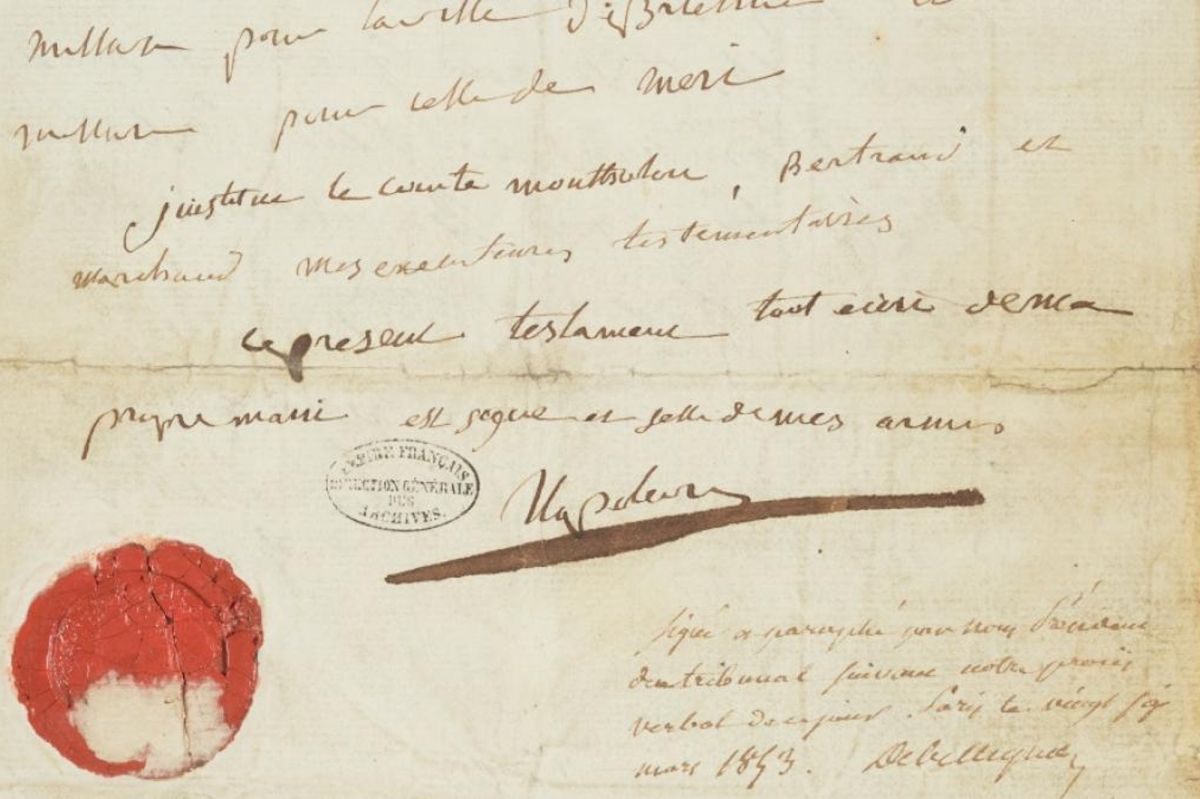 million pour la ville de Brienne et
million pour celle de meri
j'institue le comte montholon, Bertrand et
marchand mes executeurs testementaires
ce present testament tout ecrit de ma
propre main est signé et scellé de mes armes
EMPIRE FRANÇAIS
DIRECTION GÉNÉRALE
DES
ARCHIVES.
Napoleon
Signé et paraphé par nous Président
du tribunal suivant notre procès
verbal de ce jour. Paris le vingt six
mars 1853.